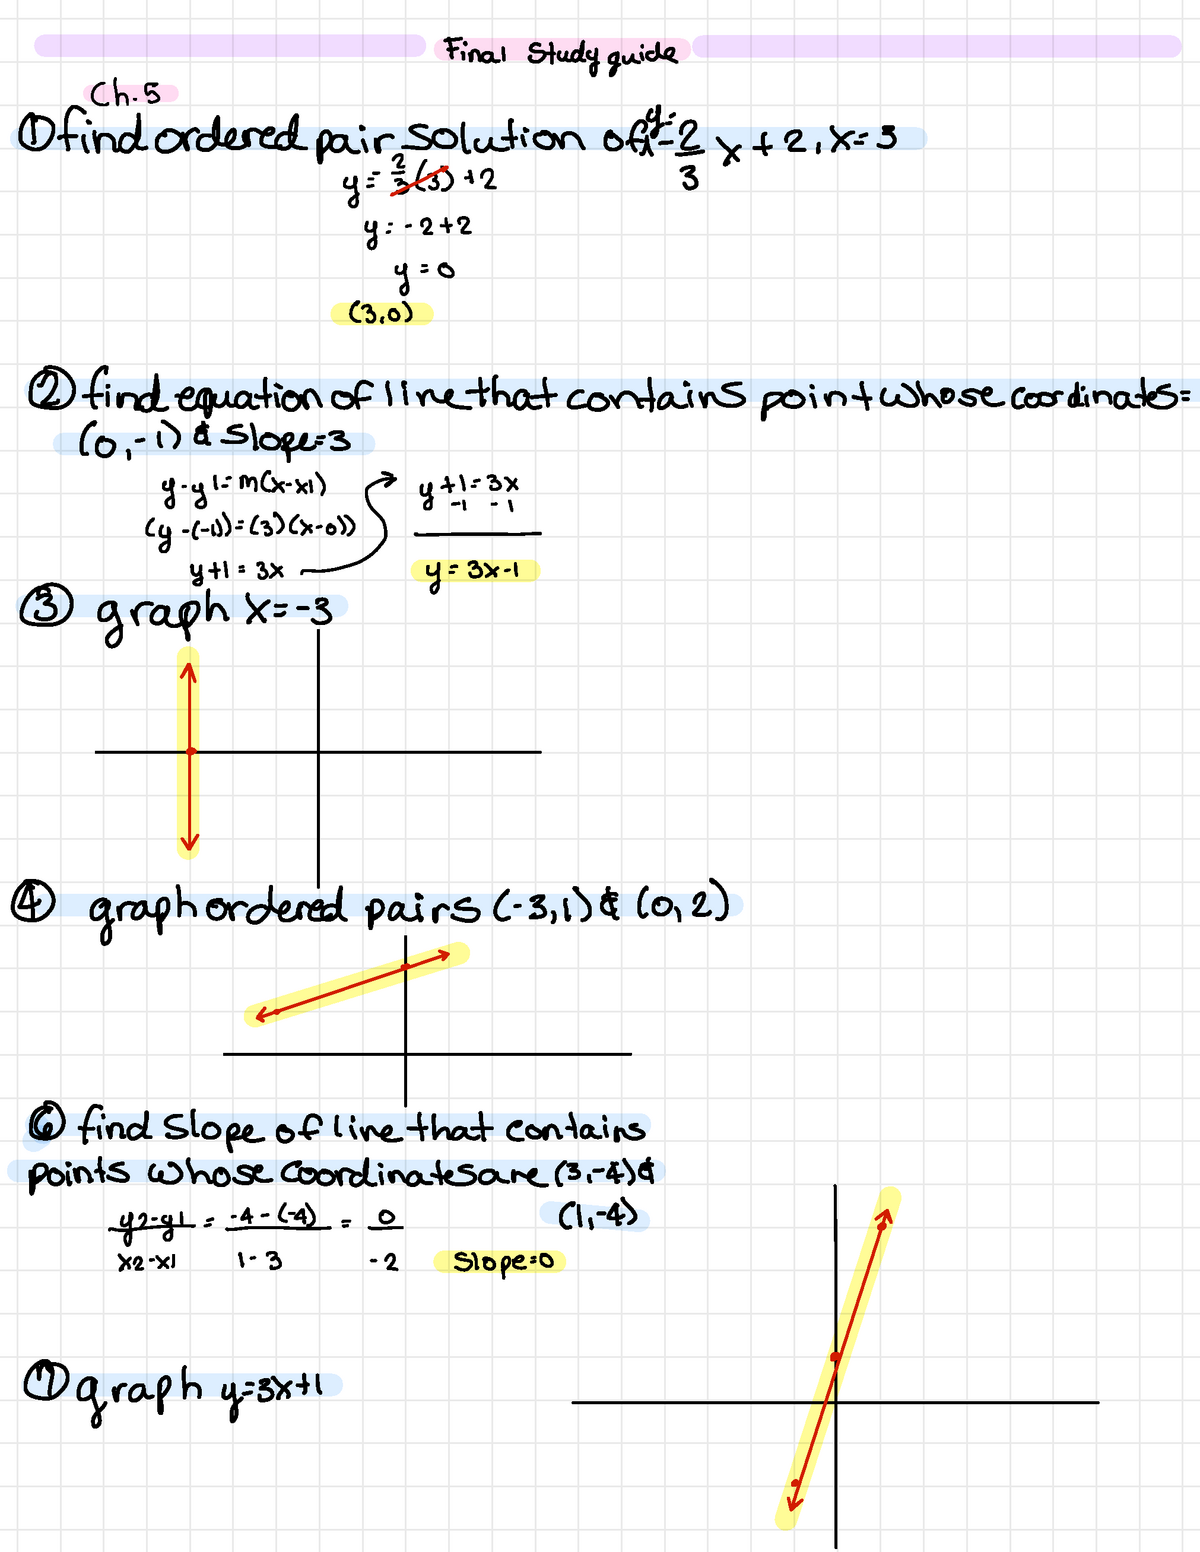 Final Study guide
Ch. 5
① find ordered pair solution of y=-2/3 x + 2, x = 3
y = 2/3(3) + 2
y = -2+2
y = 0
(3,0)
② find equation of line that contains point whose coordinates =
(0,-1) & Slope=3
y-y1= m(x-x1)
(y-(-1))=(3)(x-0))
y+1 = 3x
y+1=3x
-1 -1
y = 3x-1
③ graph x=-3
④ graph ordered pairs (-3,1) & (0,2)
⑥ find slope of line that contains
points whose coordinates are (3,-4) &
(1,-4)
y2-y1/x2-x1 = -4-(-4)/1-3 = 0/-2
Slope=0
⑦ graph y=3x+1